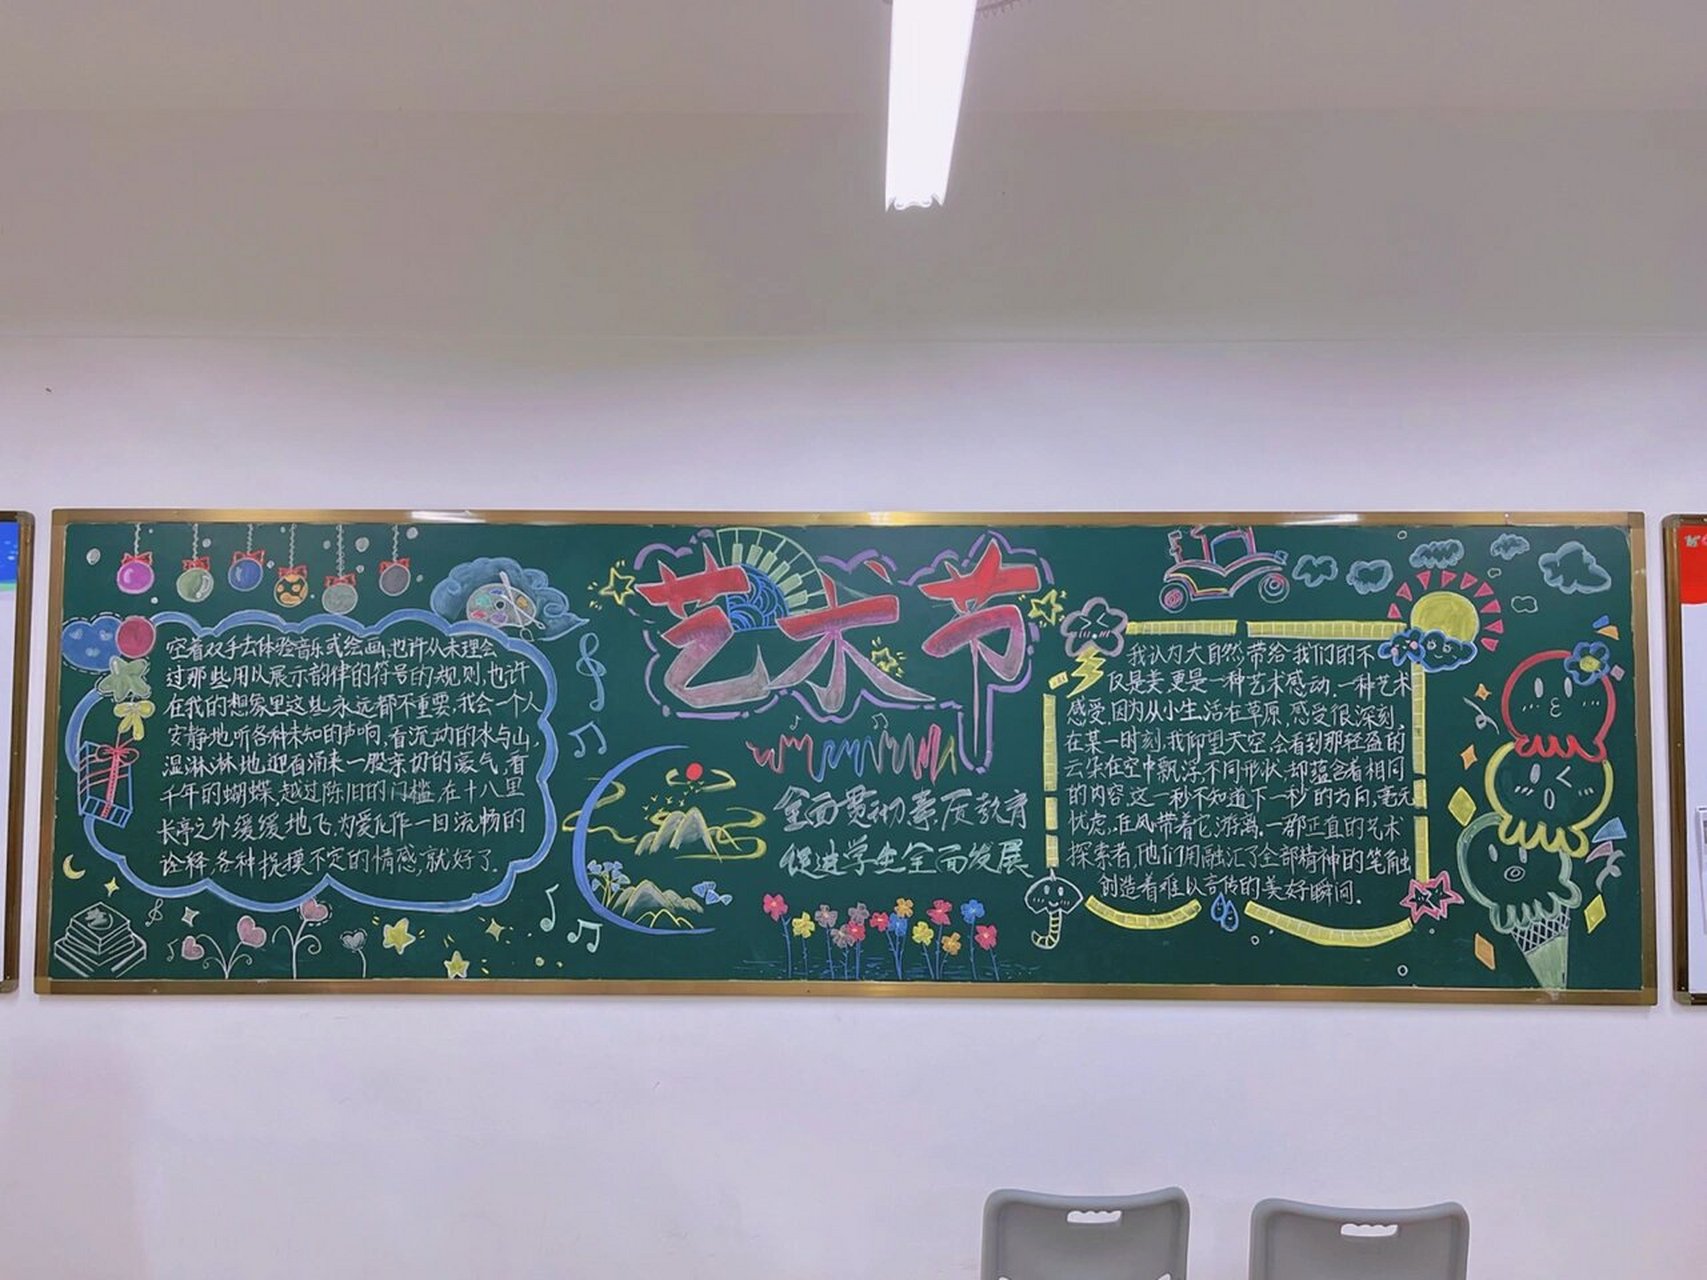 空着双手去体验音乐或绘画,也许从未理会
过那些用以展示韵律的符号的规则,也许
在我的想象里这些永远都不重要,我会一个人
安静地听各种未知的声响,看流动的水与山,
湿淋淋地迎面涌来一股亲切的雾气,看
千年的蝴蝶,越过陈旧的门槛,在十八里
长亭之外缓缓地飞,为爱化作一曰流畅的
诠释,各种捉摸不定的情感,就好了.
艺术节
全面贯彻素质教育
促进学生全面发展
我认为大自然,带给我们的不
仅是美,更是一种艺术感动,一种艺术
感受,因为从小生活在草原,感受很深刻,
在某一时刻,我仰望天空,会看到那轻盈的
云朵在空中飘浮,不同形状,却蕴含着相同
的内容,这一秒不知道下一秒的方向,毫无
忧虑,任风带着它游离,一群正直的艺术
探索者,他们用融汇了全部精神的笔触
创造着难以言传的美好瞬间.